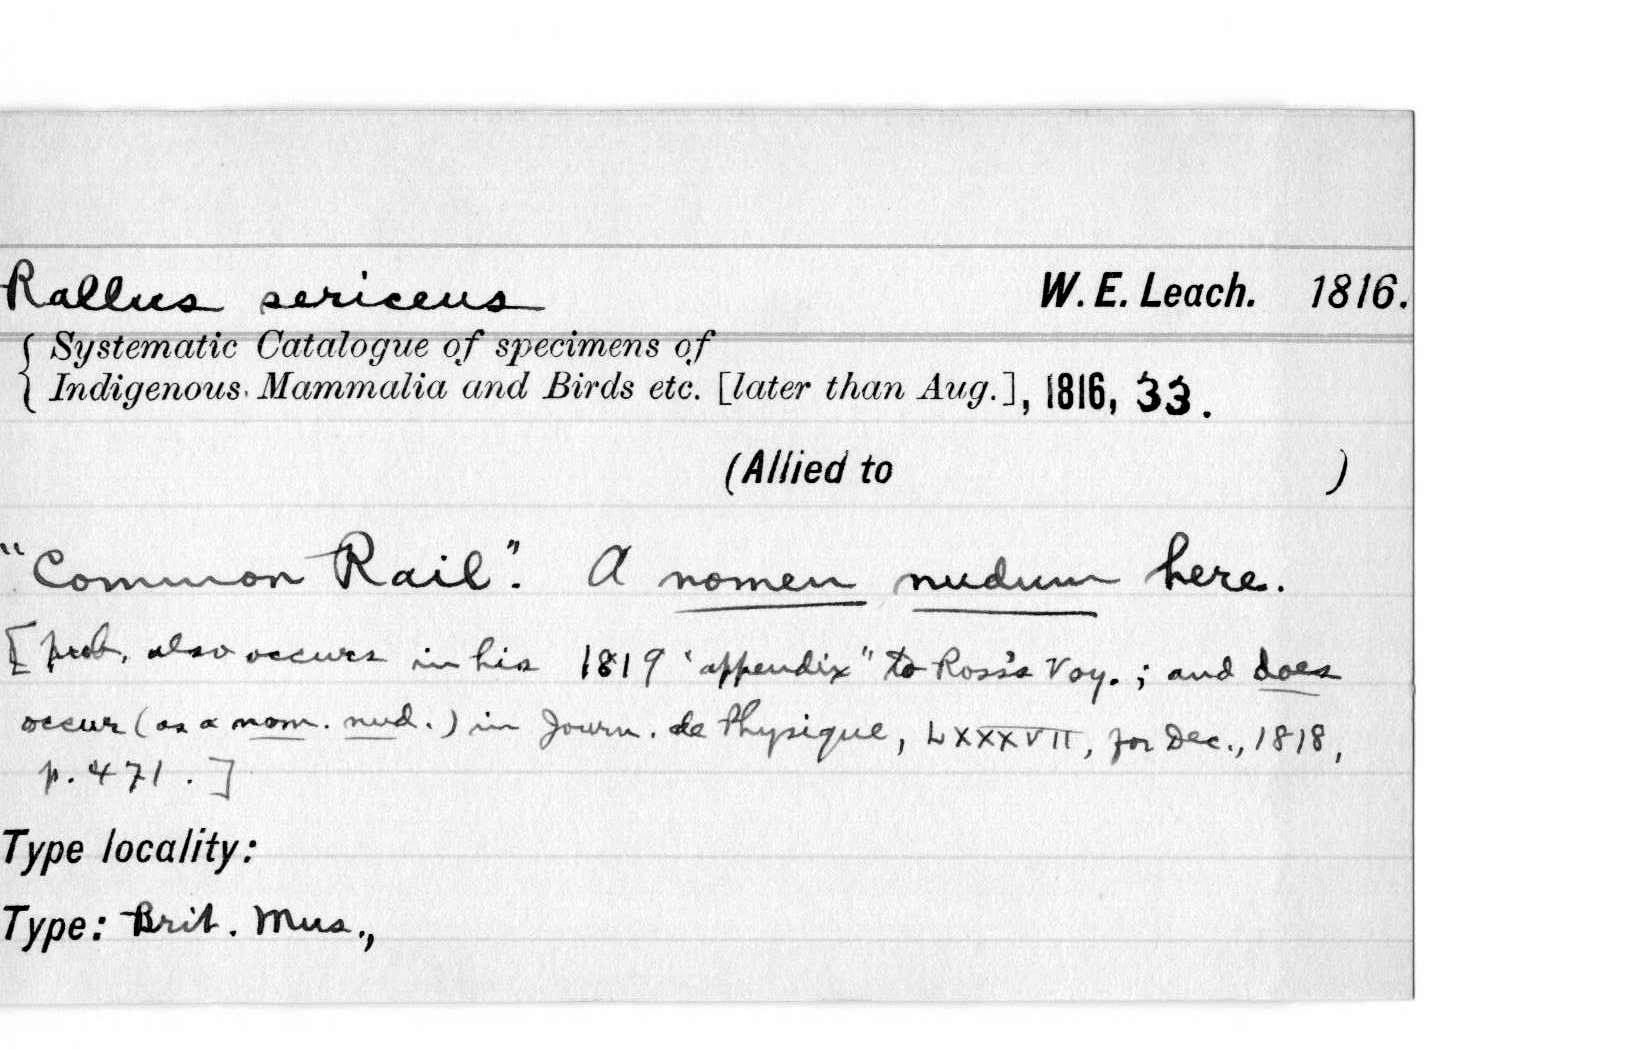 Rallus sericeus W. E. Leach. 1816.
Systematic Catalogue of specimens of
Indigenous Mammalia and Birds etc. [later than Aug.], 1816, 33.
(Allied to )
"Common Rail". A nomen nudum here.
[prob. also occurs in his 1819 'appendix" to Ross's Voy.; and does
occur (as a nom. nud.) in Journ. de Physique, LXXXVII, for Dec., 1818,
p. 471.]
Type locality:
Type: Brit. Mus.,